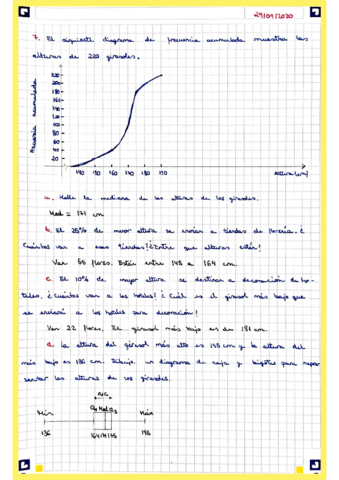 29/09/2020
7. El siguiente diagrama de frecuencia acumulada muestra las
alturas de 220 girasoles.
Frecuencia acumulada
220
200
180
160
140
120
100
80
60
40
20
140 150 160 170 180 190
Altura (cm)
a. Halle la mediana de las alturas de los girasoles.
Med = 171 cm
b. El 25% de menor altura se envían a tiendas de florería. ¿
Cuántos van a esas tiendas? ¿Entre que alturas están?
Van 55 flores. Están entre 145 a 164 cm.
c. El 10% de mayor altura se destinan a decoración de ho-
teles, ¿cuántos van a los hoteles? ¿Cuál es el girasol más bajo que
se enviará a los hoteles para decoración?
Van 22 flores. El girasol más bajo es de 181 cm.
d. La altura del girasol más alto es 195 cm y la altura del
más bajo es 136 cm. Dibuje un diagrama de caja y bigotes para repre-
sentar las alturas de los girasoles.
Mín Q1 Med Q3 Máx
136 164 171 175 195